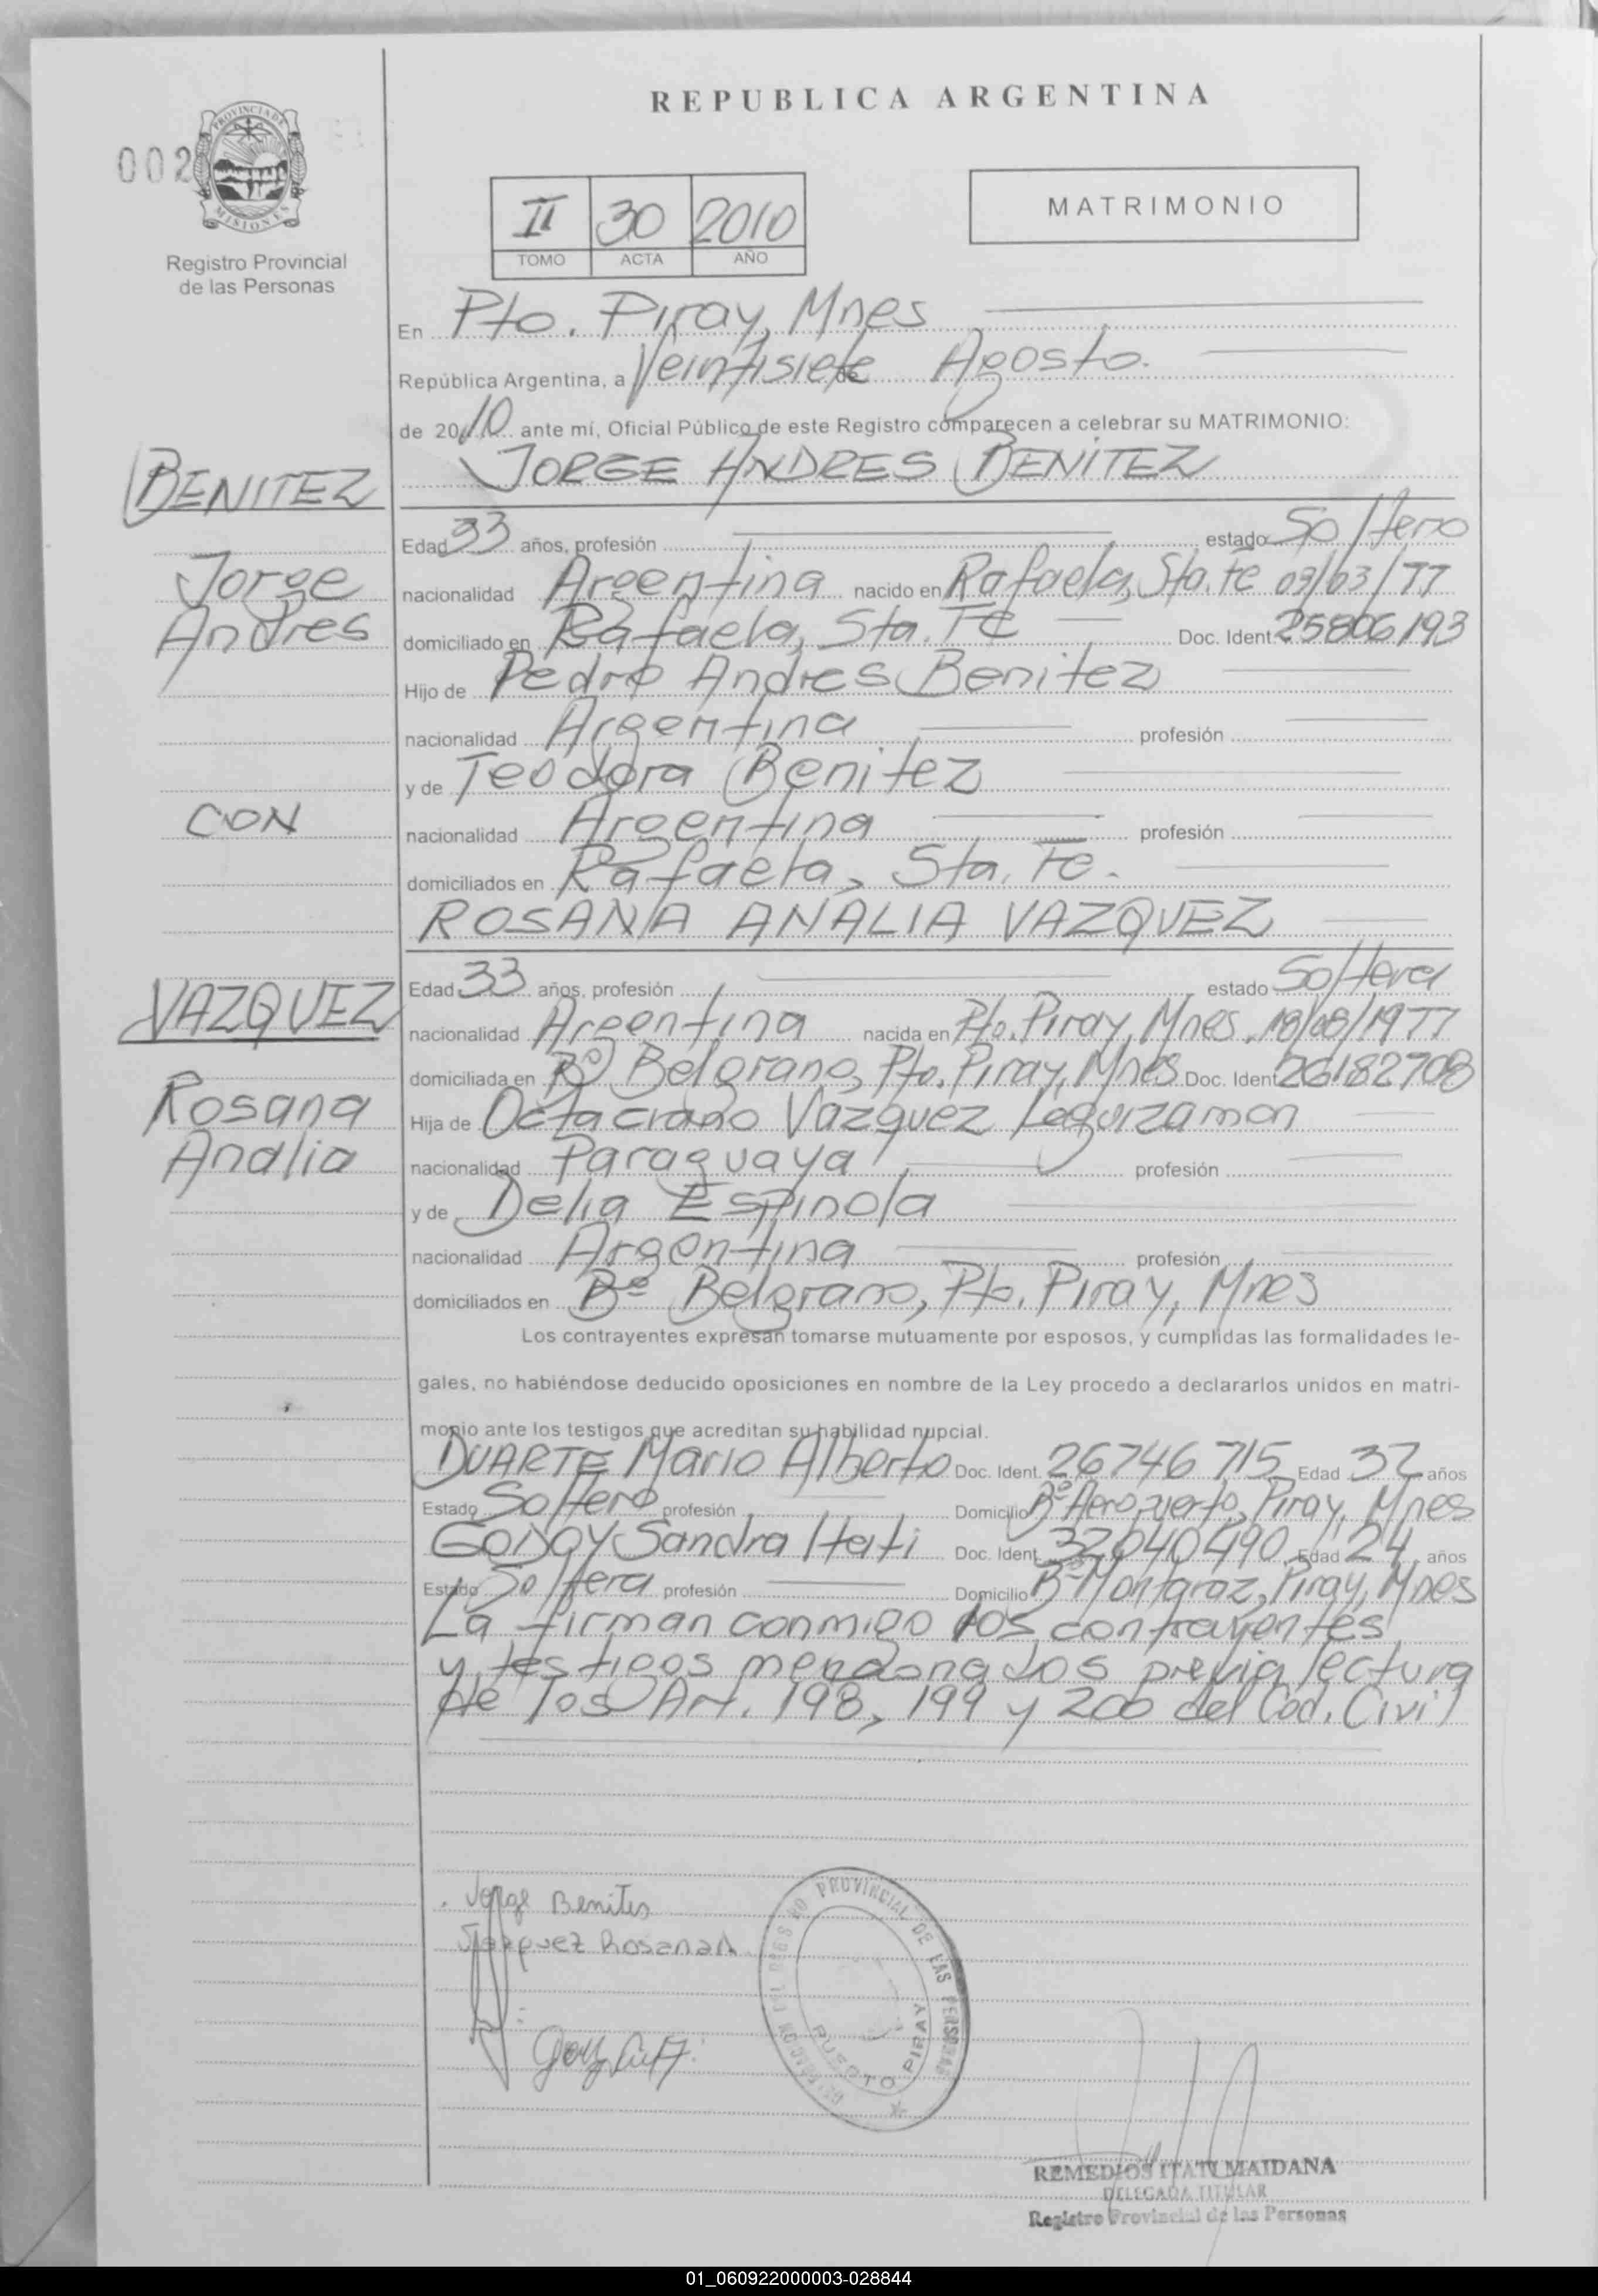 REPUBLICA ARGENTINA
002
PROVINCIA DE
MISIONES
Registro Provincial
de las Personas
II 30 2010
TOMO ACTA AÑO
MATRIMONIO
En Pto. Piray, Mnes
República Argentina, a Veintisiete de Agosto.
de 2010 ante mí, Oficial Público de este Registro comparecen a celebrar su MATRIMONIO:
BENITEZ
JORGE ANDRES BENITEZ
Edad 33 años, profesión estado Soltero
Jorge
nacionalidad Argentina nacido en Rafaela, Sta. Fe 09/03/77
Andres
domiciliado en Rafaela, Sta. Fe Doc. Ident. 25806193
Hijo de Pedro Andres Benitez
nacionalidad Argentina profesión
y de Teodora Benitez
CON
nacionalidad Argentina profesión
domiciliados en Rafaela, Sta. Fe.
ROSANA ANALIA VAZQUEZ
Edad 33 años, profesión estado Soltera
VAZQUEZ
nacionalidad Argentina nacida en Pto. Piray, Mnes. 18/08/1977
domiciliada en Bº Belgrano, Pto. Piray, Mnes Doc. Ident 26182708
Rosana
Hija de Vazquez Leguizamon
Analia
nacionalidad Paraguaya profesión
y de Delia Espinola
nacionalidad Argentina profesión
domiciliados en Bº Belgrano, Pto. Piray, Mnes
Los contrayentes expresan tomarse mutuamente por esposos, y cumplidas las formalidades le-
gales, no habiéndose deducido oposiciones en nombre de la Ley procedo a declararlos unidos en matri-
monio ante los testigos que acreditan su habilidad nupcial.
DUARTE Mario Alberto Doc. Ident. 26746715 Edad 32 años
Estado Soltero profesión Domicilio Bº Aeropuerto, Piray, Mnes
GODOY Sandra Itati Doc. Ident. 32040490 Edad 24 años
Estado Soltera profesión Domicilio Bº Montaraz, Piray, Mnes
La firman conmigo los contrayentes
y testigos mencionados previa lectura
de los Art. 198, 199 y 200 del Cod. Civil
Jorge Benites
Vazquez Rosana A
PROVINCIAL DE LAS PERSONAS
PUERTO PIRAY
REMEDIOS ITATI MAIDANA
DELEGADA TITULAR
Registro Provincial de las Personas
01_060922000003-028844